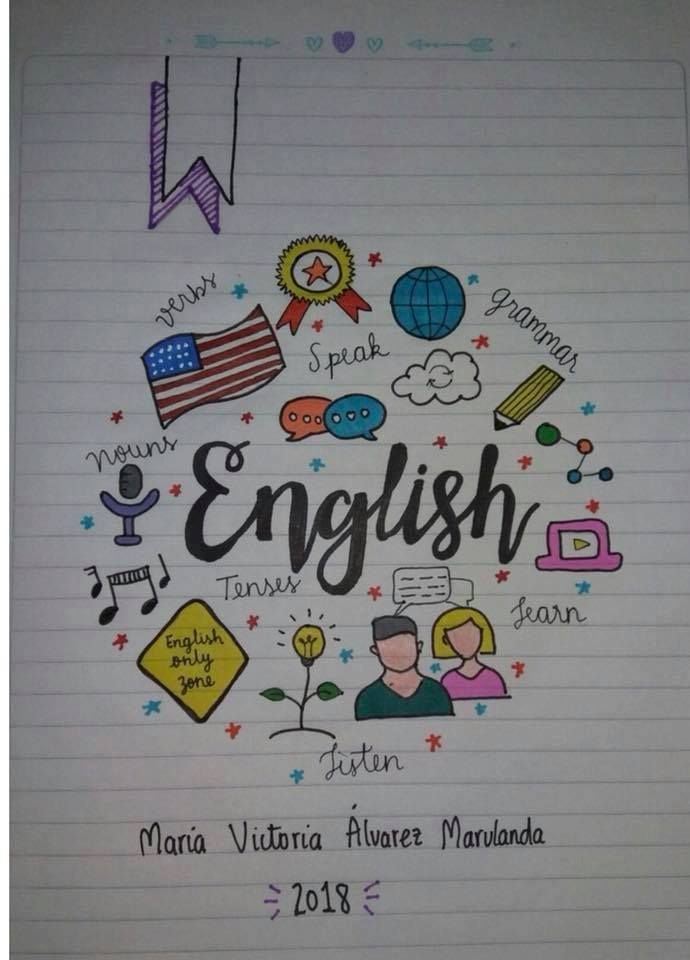 verbs
grammar
Speak
nouns
English
Tenses
learn
English
only
zone
Listen
María Victoria Álvarez Marulanda
2018